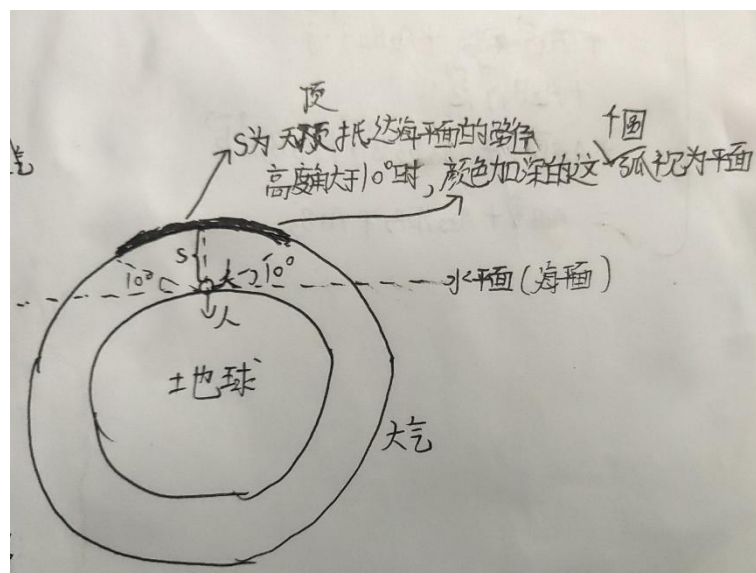 顶
S为天顶抵达海平面的路径
个圆
高度角大于10°时,颜色加深的这一弧视为平面
S
10°
10°
水平面(海平面)
人
地球
大气